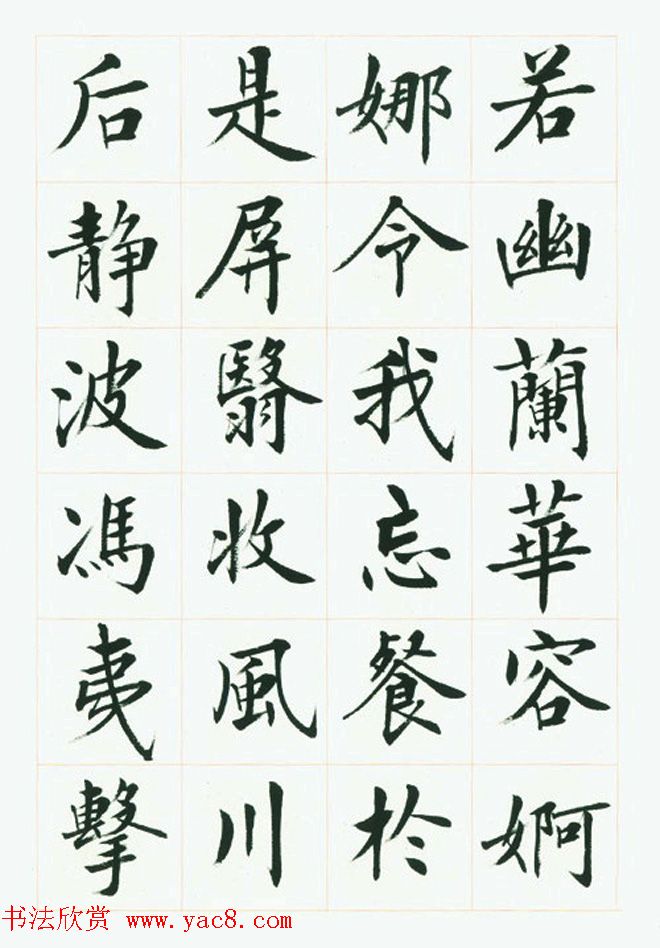 若幽蘭華容婀
娜令我忘餐於
是屏翳收風川
后静波馮夷擊
书法欣赏 www.yac8.com